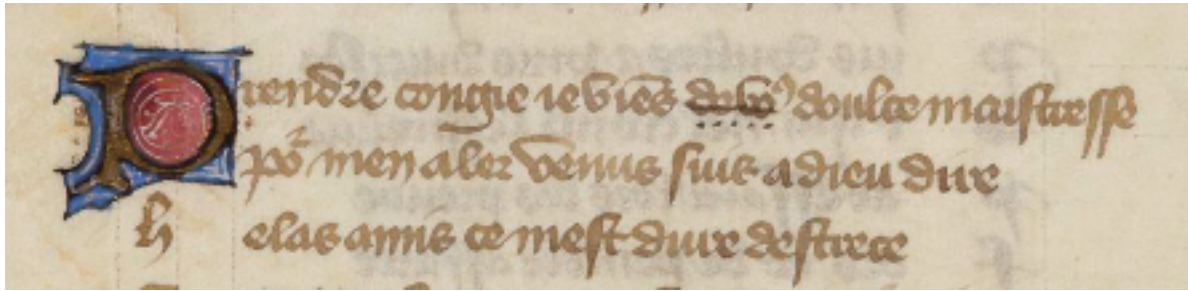 Prendre congie ie viẽs de voꝰ doulce maistresse
poᷣ men aler venus suis adieu dire
helas amis ce mest dure destrece